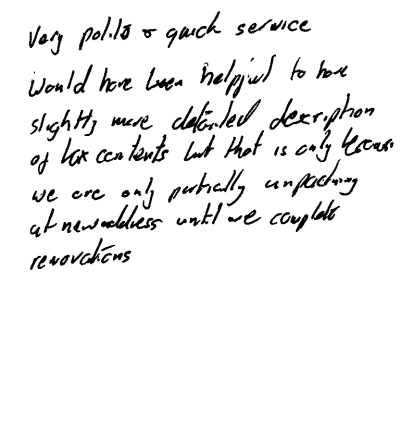 Very polite & quick service
Would have been helpful to have
slightly more detailed description
of box contents but that is only because
we are only partially unpacking
at new address until we complete
renovations